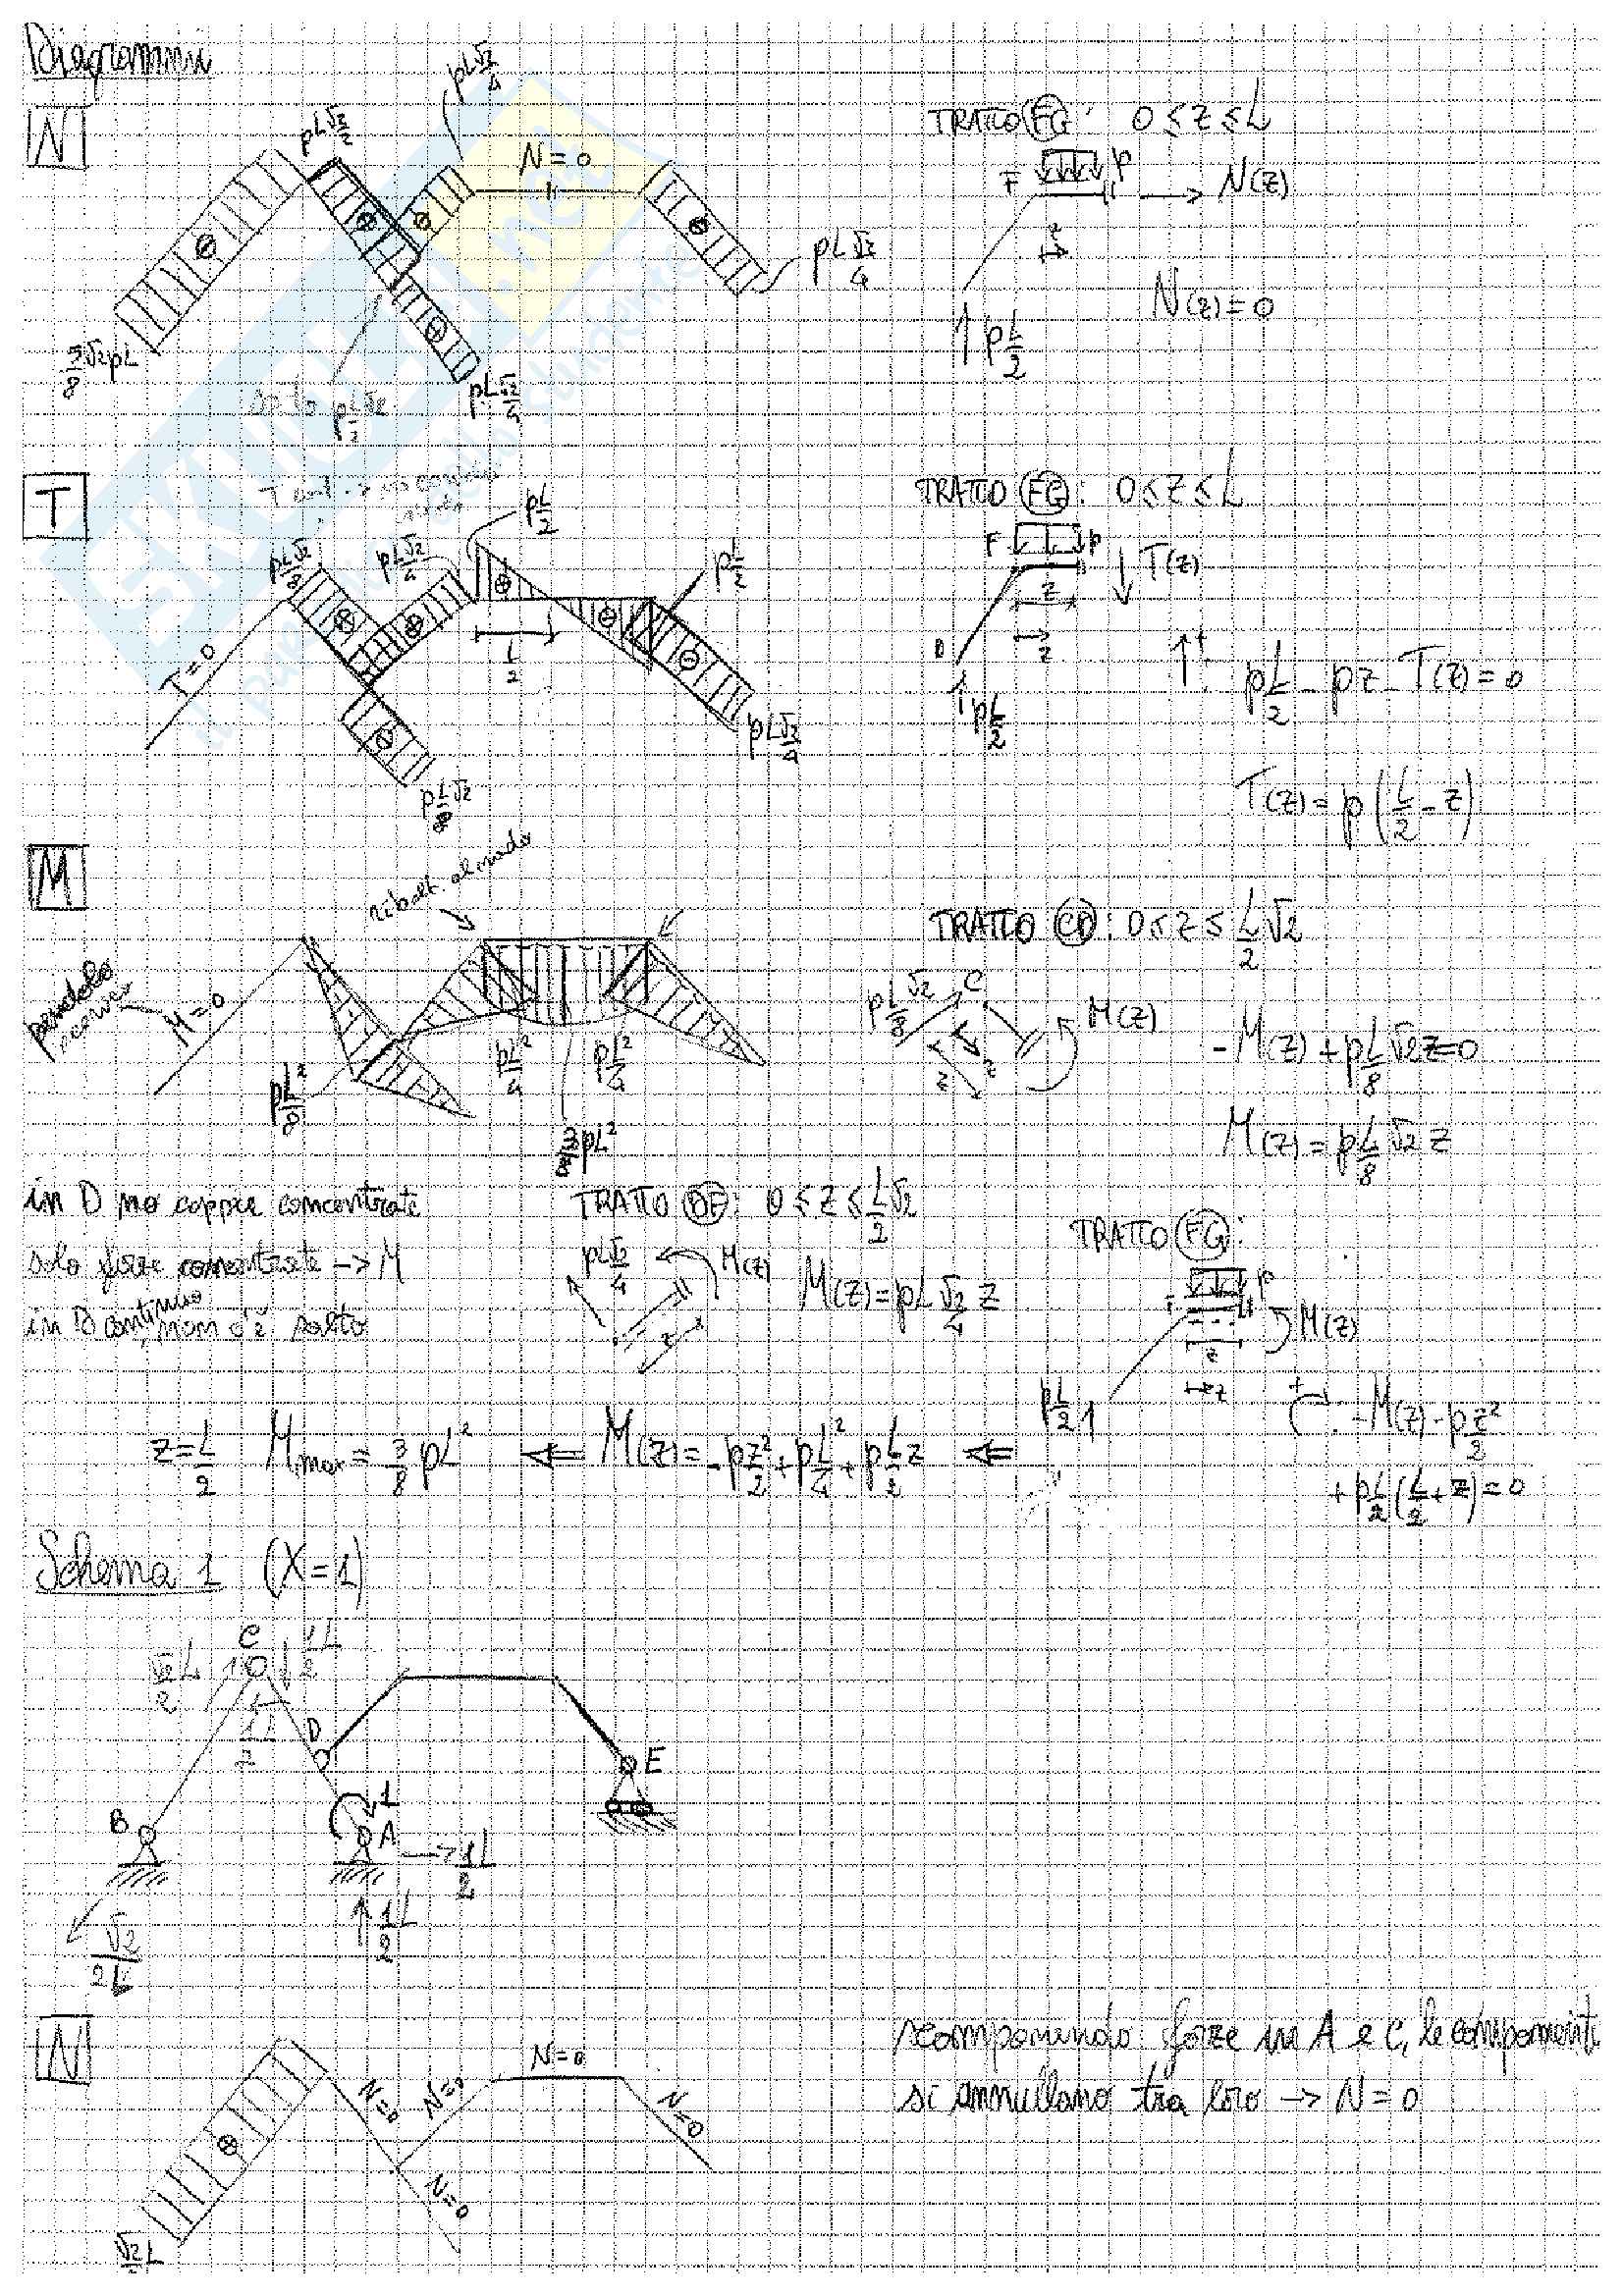 Diagrammi
N
pL√2/2
pL√2/4
N = 0
pL√2/4
5/8 √2 pL
pL√2/4
TRATTO FG: 0 ≤ z ≤ L
F p N(z)
z
pL/2
N(z) = 0
T
pL/2
pL√2/8
pL√2/4
pL/2
T=0
L/2
pL√2/4
pL√2/8
TRATTO FG: 0 ≤ z ≤ L
F p T(z)
z
D z
pL/2
pL/2 - pz - T(z) = 0
T(z) = p(L/2 - z)
M
ribalt. al nodo
pendolo
scarico
M=0
pL²/8
pL²/4
pL²/4
3/8 pL²
TRATTO CD: 0 ≤ z ≤ L/2 √2
pL√2/8 C M(z)
z z
-M(z) + pL/8 √2 z = 0
M(z) = pL/8 √2 z
in D no coppie concentrate
solo forze concentrate -> M
in D continuo, non c'è salto
TRATTO DF: 0 ≤ z ≤ L/2 √2
pL√2/4 M(z)
z
M(z) = pL √2/4 z
TRATTO FG:
F p
M(z)
z
z
pL/2
-M(z) - pz²/2
+ pL/2 (L/2 + z) = 0
z = L/2 Mmax = 3/8 pL² <= M(z) = -pz²/2 + pL²/4 + pL/2 z <=
Schema 1 (X=1)
C
D
1
A
B
E
N
√2/2L
N=0
N=0
N=0
N=0
N=0
scomponendo forze in A e C, le componenti
si annullano tra loro -> N = 0